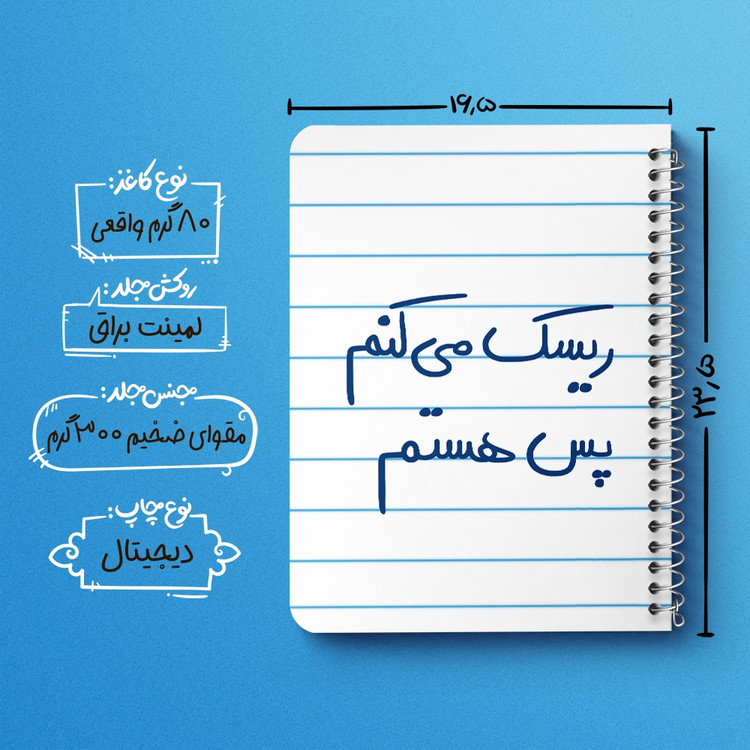 ۱۶٫۵
۲۳٫۵
ریسک می‌کنم
پس هستم
نوع کاغذ:
۸۰ گرم واقعی
روکش مجلد:
لمینت براق
جنس مجلد:
مقوای ضخیم ۳۰۰ گرم
نوع چاپ:
دیجیتال